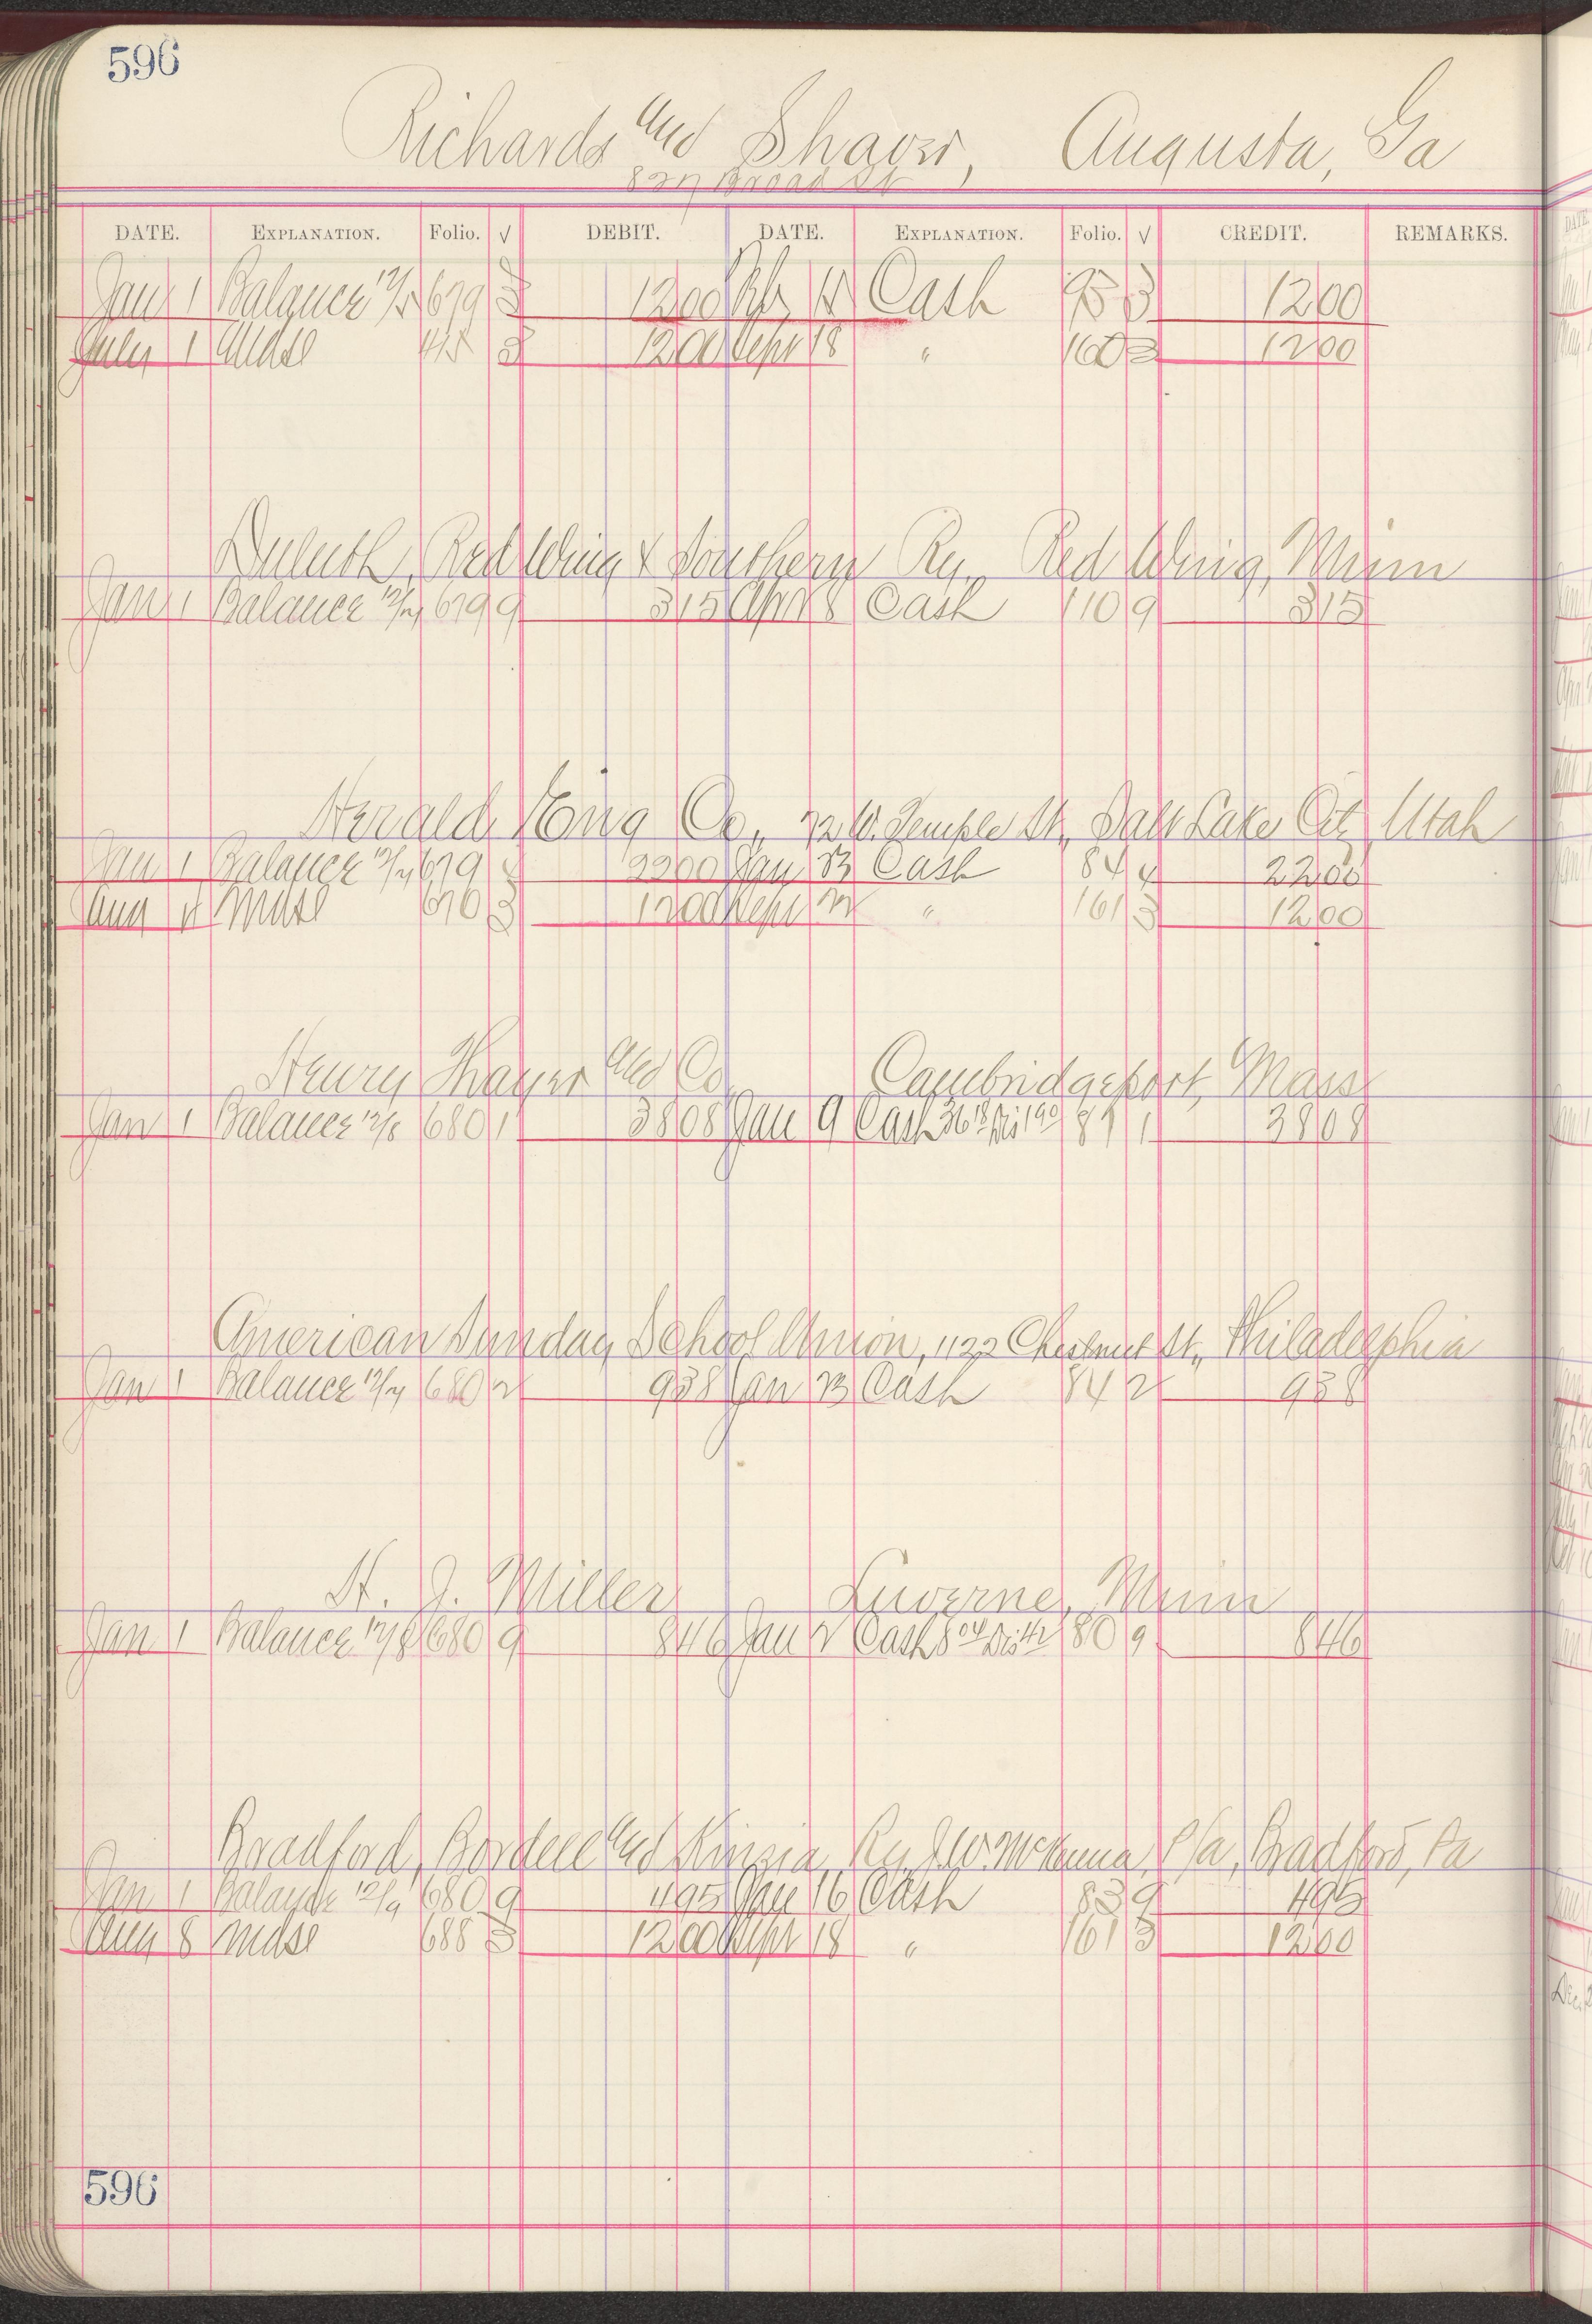 596
Richards and Shaver, Augusta, Ga
827 Broad St
DATE. EXPLANATION. Folio. √ DEBIT. DATE. EXPLANATION. Folio. √ CREDIT. REMARKS.
Jan 1 Balance 679 3 1200 Feb Cash 95 3 1200
July 1 Mdse 3 1200 Sept 18 " 160 3 1200
Duluth, Red Wing & Southern Ry, Red Wing, Minn
Jan 1 Balance 679 9 315 Apr 8 Cash 110 9 315
Herald Eng Co, W. Temple St, Salt Lake City Utah
Jan 1 Balance 679 2200 Jan 23 Cash 84 4 2200
Aug 4 Mdse 676 3 1200 Sept 22 " 161 3 1200
Henry Thayer and Co Cambridgeport, Mass
Jan 1 Balance 12/8 680 1 3808 Jan 9 Cash 36 18 Dis 1 90 81 1 3808
American Sunday School Union, 1122 Chestnut St., Philadelphia
Jan 1 Balance 680 2 958 Jan 23 Cash 84 2 958
H. J. Miller Luverne, Minn
Jan 1 Balance 12/8 680 9 846 Jan 2 Cash 8 04 Dis 42 80 9 846
Bradford, Bordell and Kinzua Ry, J W McKenna, P/a, Bradford, Pa
Jan 1 Balance 12/9 680 9 495 Jan 16 Cash 83 9 495
Aug 8 Mdse 688 3 1200 Sept 18 " 161 3 1200
596